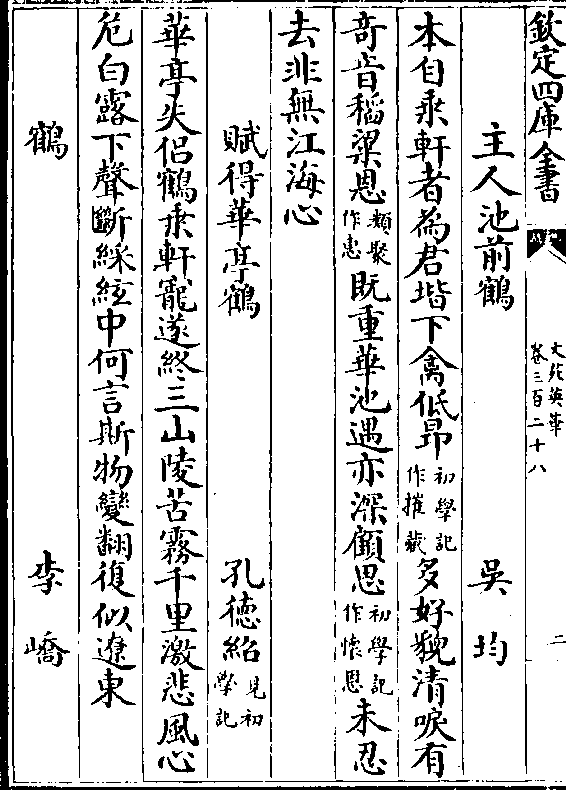 欽定四庫全書
文苑英華
卷三百二十八
二
主人池前鶴 吳均
本自乗軒者為君堦下禽低昻初學記作摧藏多好貌清唳有
竒音稻粱恩類聚作惠既重華池遇亦深顧思初學記作懷恩未忍
去非無江海心
賦得華亭鶴 孔徳紹見初學記
華亭失侶鶴乗軒寵遂終三山陵苦霧千里激悲風心
危白露下聲斷綵絃中何言斯物變翻復似遼東
鶴 李嶠